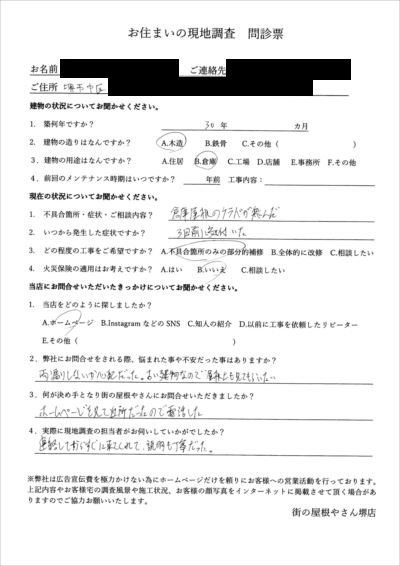 お住まいの現地調査 問診票
お名前 ご連絡先
ご住所 堺市中区
建物の状況についてお聞かせください。
1. 築何年ですか? 30 年 カ月
2. 建物の造りはなんですか? A.木造 B.鉄骨 C.その他( )
3. 建物の用途はなんですか? A.住居 B.倉庫 C.工場 D.店舗 E.事務所 F.その他
4. 前回のメンテナンス時期はいつですか? 年前 工事内容:
現在の状況についてお聞かせください。
1. 不具合箇所・症状・ご相談内容? 倉庫屋根のケラバが飛んだ
2. いつから発生した症状ですか? 3日前
3. どの程度の工事をご希望ですか? A.不具合箇所のみの部分的補修 B.全体的に改修 C.相談したい
4. 火災保険の適用はお考えですか? A.はい B.いいえ C.相談したい
当店にお問合せいただいたきっかけについてお聞かせください。
1. 当店をどのように探しましたか?
A.ホームページ B.Instagram などの SNS C.知人の紹介 D.以前に工事を依頼したリピーター
E.その他( )
2. 弊社にお問合せをされる際、悩まれた事や不安だった事はありますか?
雨漏りしないか心配だった。古い建物なので屋根上も見てもらいたい
3. 何が決め手となり街の屋根やさんにお問合せいただきましたか?
ホームページを見て近所だったので電話した
4. 実際に現地調査の担当者がお伺いしていかがでしたか?
連絡してからすぐに来てくれて、説明も丁寧だった。
※弊社は広告宣伝費を極力かけない為にホームページだけを頼りにお客様への営業活動を行っております。
上記内容やお客様宅の調査風景や施工状況、お客様の顔写真をインターネットに掲載させて頂く場合があ
りますのでご協力お願いいたします。
街の屋根やさん堺店